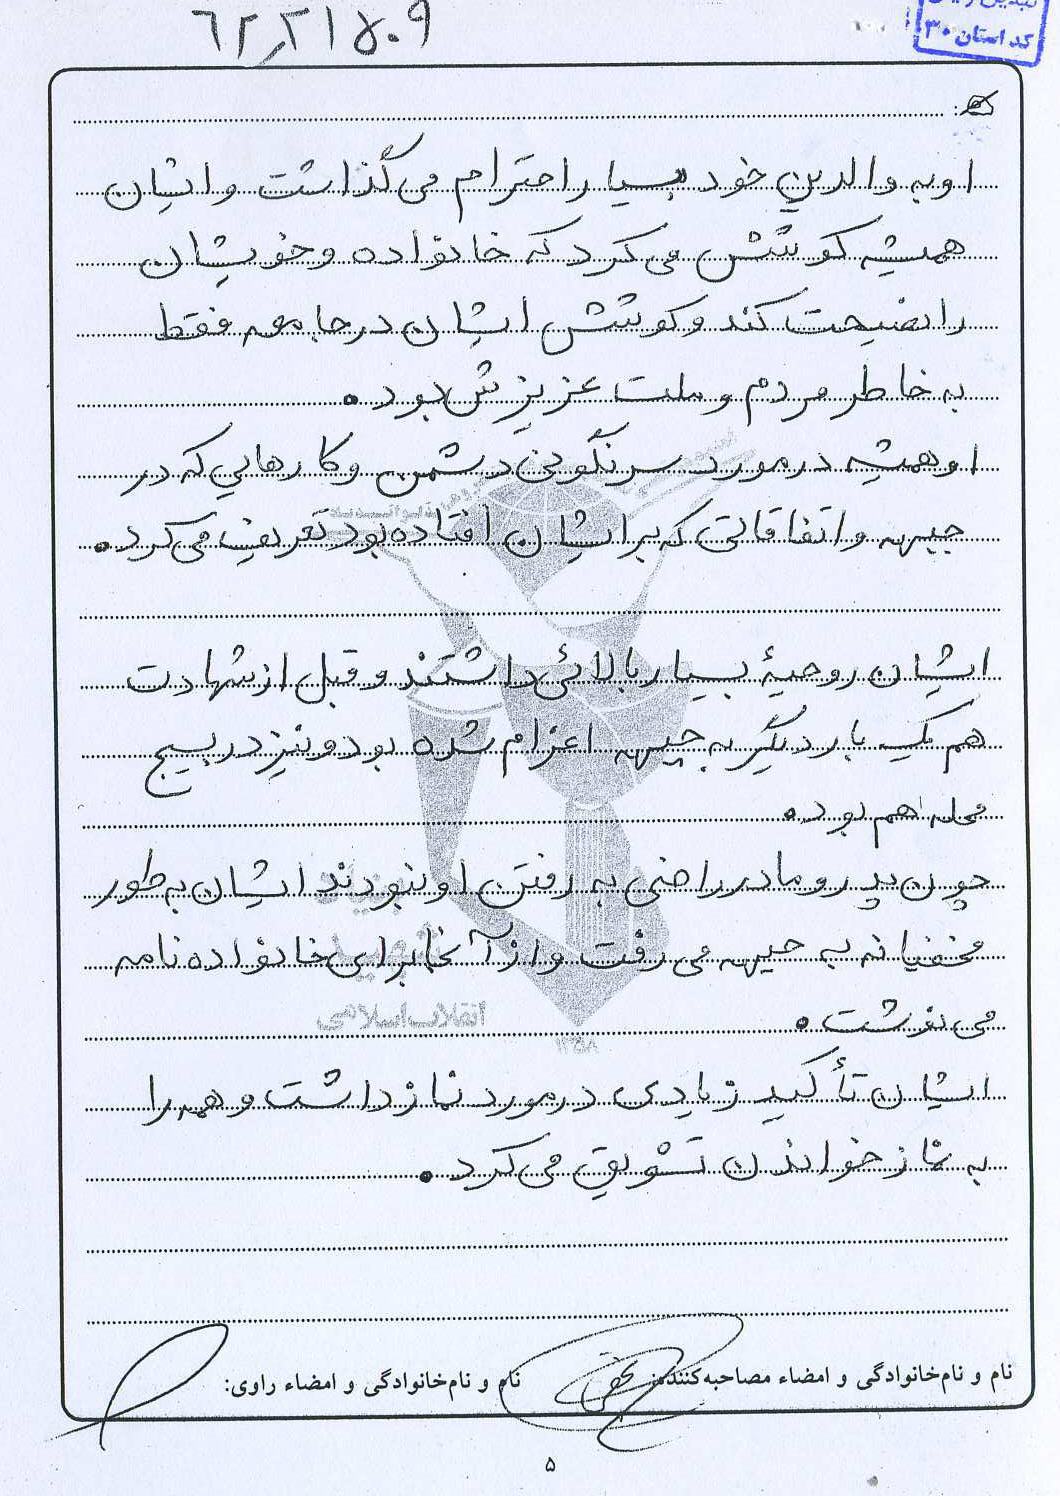 ۶۲۰۲۱۵۰۹
کد استان ۳۰
او به والدین خود بسیار احترام می گذاشت و ایشان
همیشه کوشش می کرد که خانواده و خویشان
را نصیحت کند و کوشش ایشان در جامعه فقط
به خاطر مردم و ملت عزیزش بود.
او همیشه در مورد سرنگونی دشمن و کارهایی که در
جبهه و اتفاقاتی که برایشان افتاده بود تعریف می کرد.
ایشان روحیهٔ بسیار بالائی داشتند و قبل از شهادت
هم یک بار دیگر به جبهه اعزام شده بود و نیز در بسیج
محله هم بود.
چون پدر و مادر راضی به رفتن او نبودند ایشان به طور
مخفیانه به جبهه می رفت و از آنجا برای خانواده نامه
می نوشت.
ایشان تأکید زیادی در مورد نماز داشت و همه را
به نماز خواندن تشویق می کرد.
انقلاب اسلامی
۱۳۵۸
نام و نام‌خانوادگی و امضاء مصاحبه‌کننده:
نام و نام‌خانوادگی و امضاء راوی:
۵